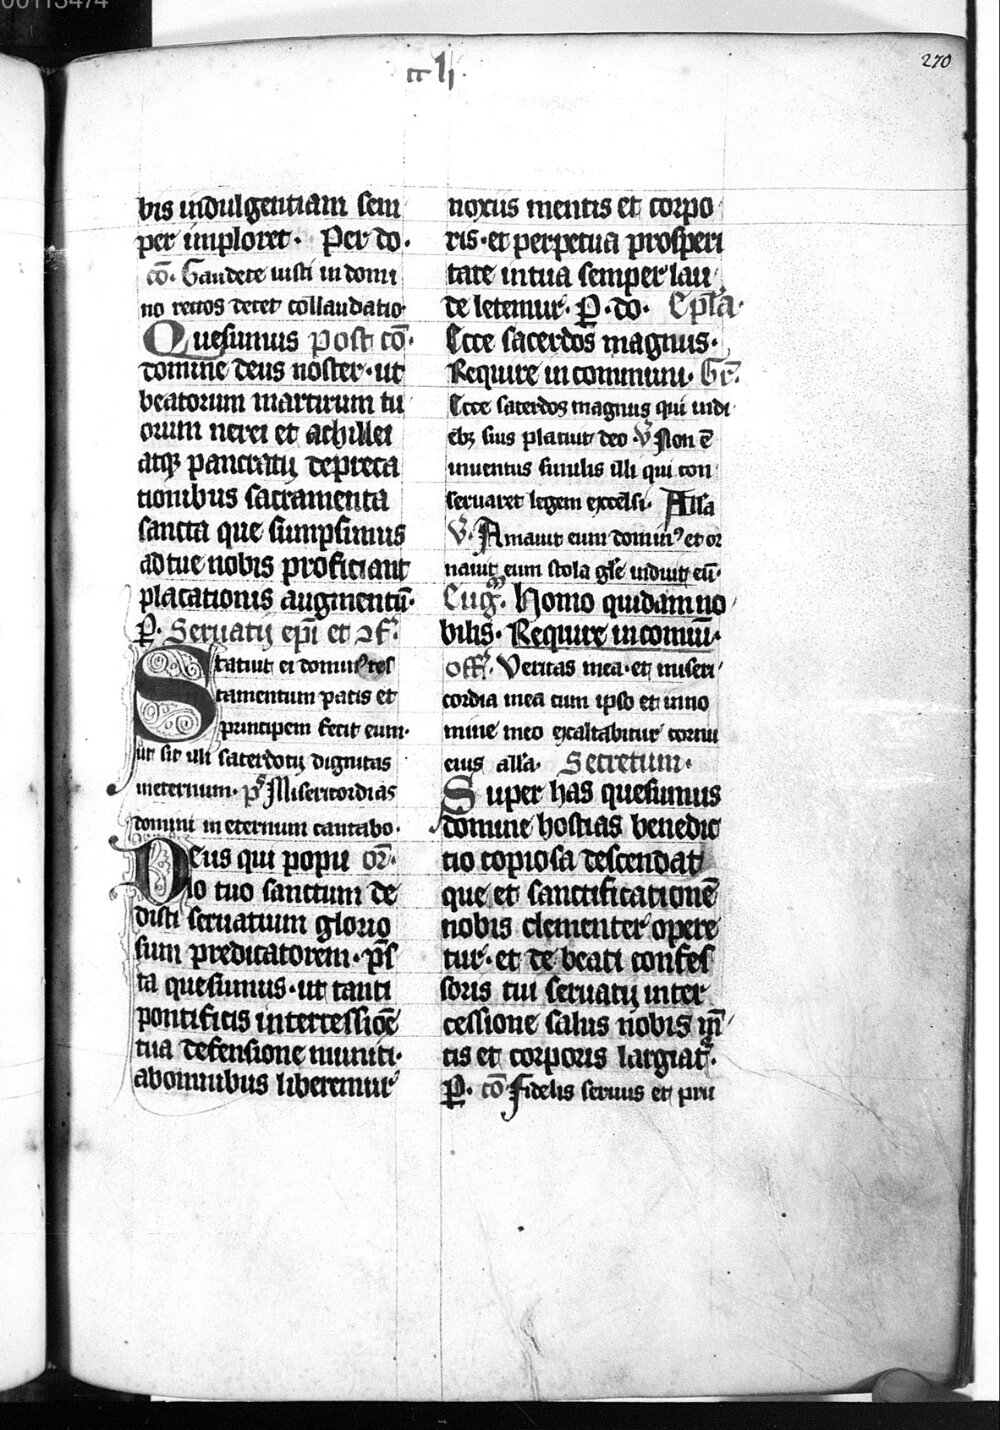 00113474
270
cc lj.
bis indulgentiam sem
per imploret. Per do.
cõ. Gaudete iusti in domi
no rectos decet collaudatio.
Quesumus post cõ.
domine deus noster. ut
beatorum martirum tu
orum nerei et achillei
atqꝫ pancratij depreca
tionibus sacramenta
sancta que sumpsimus
ad tue nobis proficiant
placationis augmentũ.
P. Seruatij epĩ et ꝯf.
Statuit ei dominꝰ tes
tamentum pacis et
principem fecit eum.
ut sit illi sacerdotij dignitas
ineternum. pˢ Misericordias
domini in eternum cantabo.
Deus qui popu or̃.
lo tuo sanctum de
disti seruatium glorio
sum predicatorem. p̃s
ta quesumus. ut tanti
pontificis intercessiõe
tua defensione muniti.
abomnibus liberemur
noxiis mentis et corpo
ris. et perpetua prosperi
tate in tua semper lau
de letemur. P. do. Ep̃la.
Ecce sacerdos magnus.
Require in communi. Gr̃.
Ecce sacerdos magnus qui in di
ebꝫ suis placuit deo V Non ẽ
inuentus similis illi qui con
seruaret legem excelsi. All̃a
V. Amauit eum dominꝰ et or
nauit eum stola gl̃e induit eũ.
Eug̃. Homo quidam no
bilis. Require in comũ.
off̃. Veritas mea. et miseri
cordia mea cum ipso et in no
mine meo exaltabitur cornu
eius all̃a. Secretum.
Super has quesumus
domine hostias benedic
tio copiosa descendat
que et sanctificationẽ
nobis clementer opere
tur. et de beati confes
soris tui seruatij inter
cessione salus nobis mẽ
tis et corporis largiat᷑.
P. cõ Fidelis seruus et pru